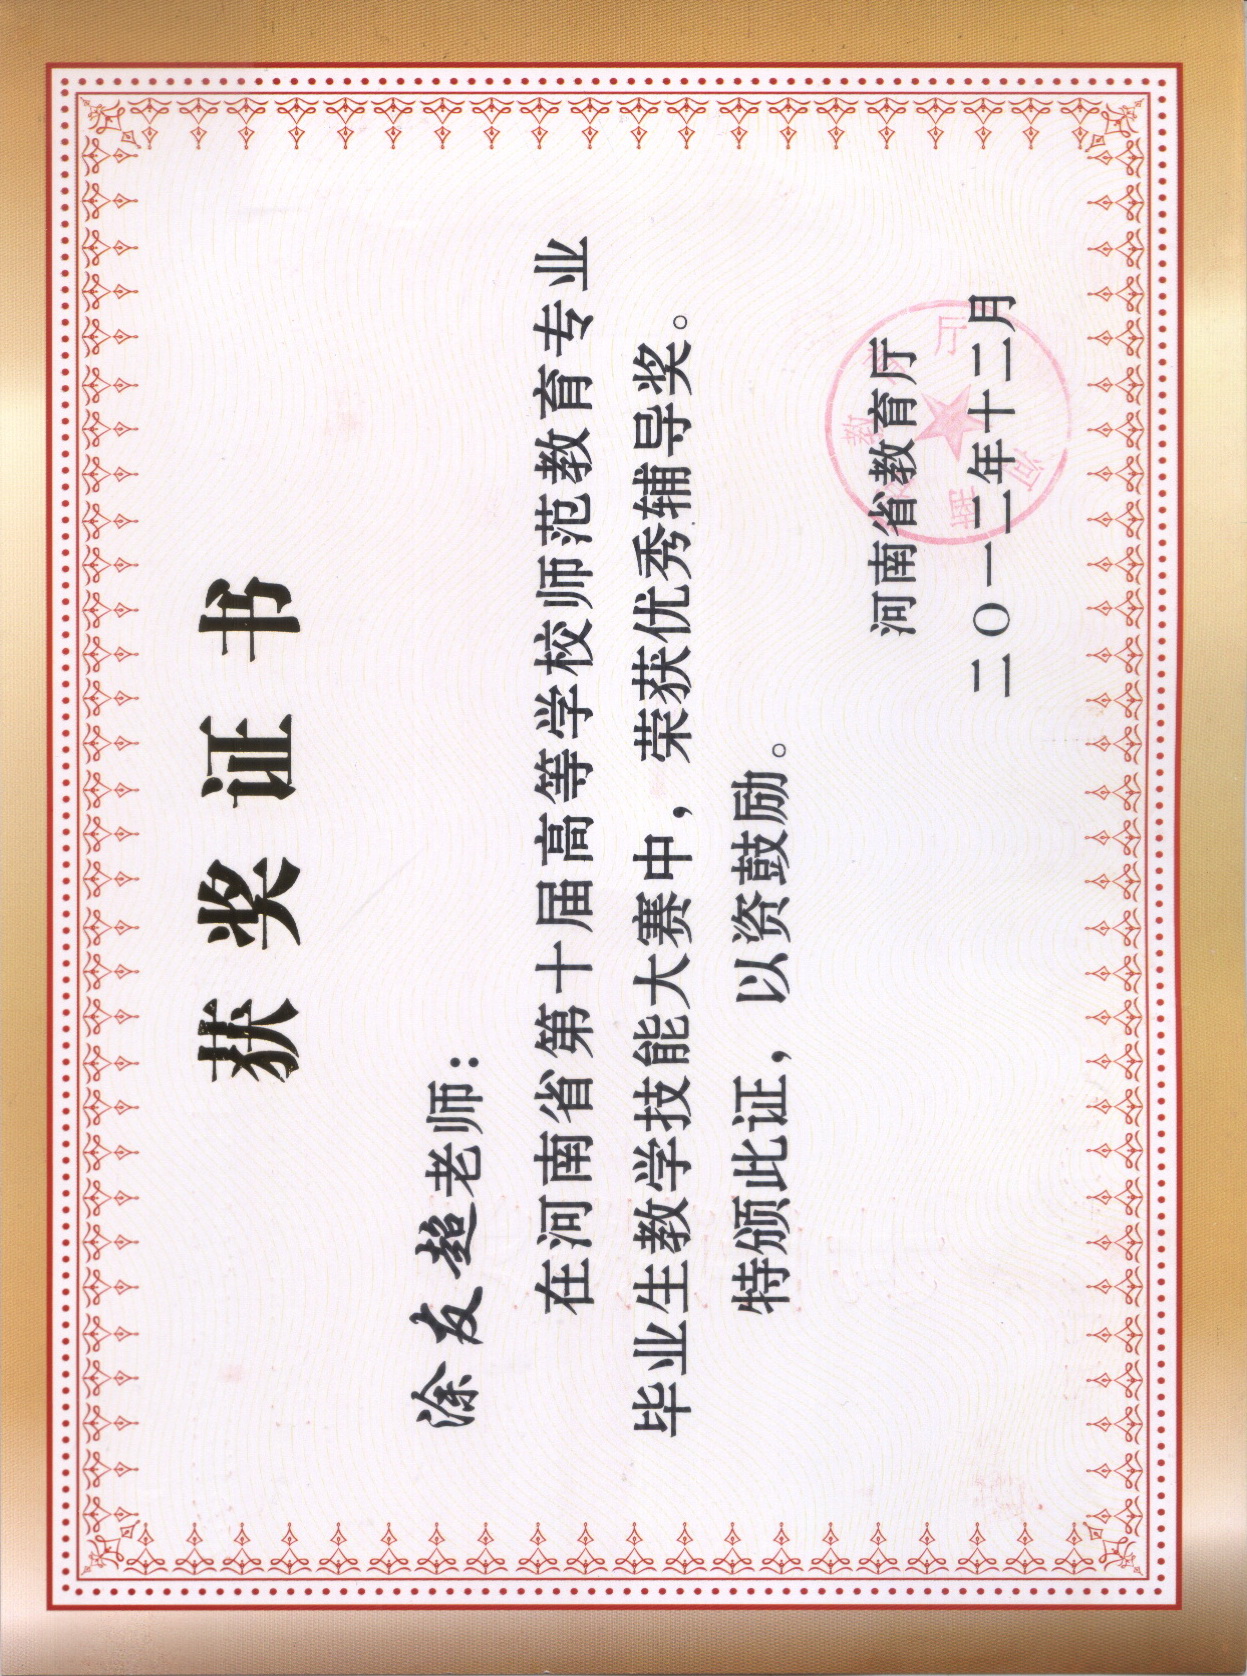 获奖证书
涂友超老师：
在河南省第十届高等学校师范教育专业
毕业生教学技能大赛中，荣获优秀辅导奖。
特颁此证，以资鼓励。
河南省教育厅
二〇一二年十二月